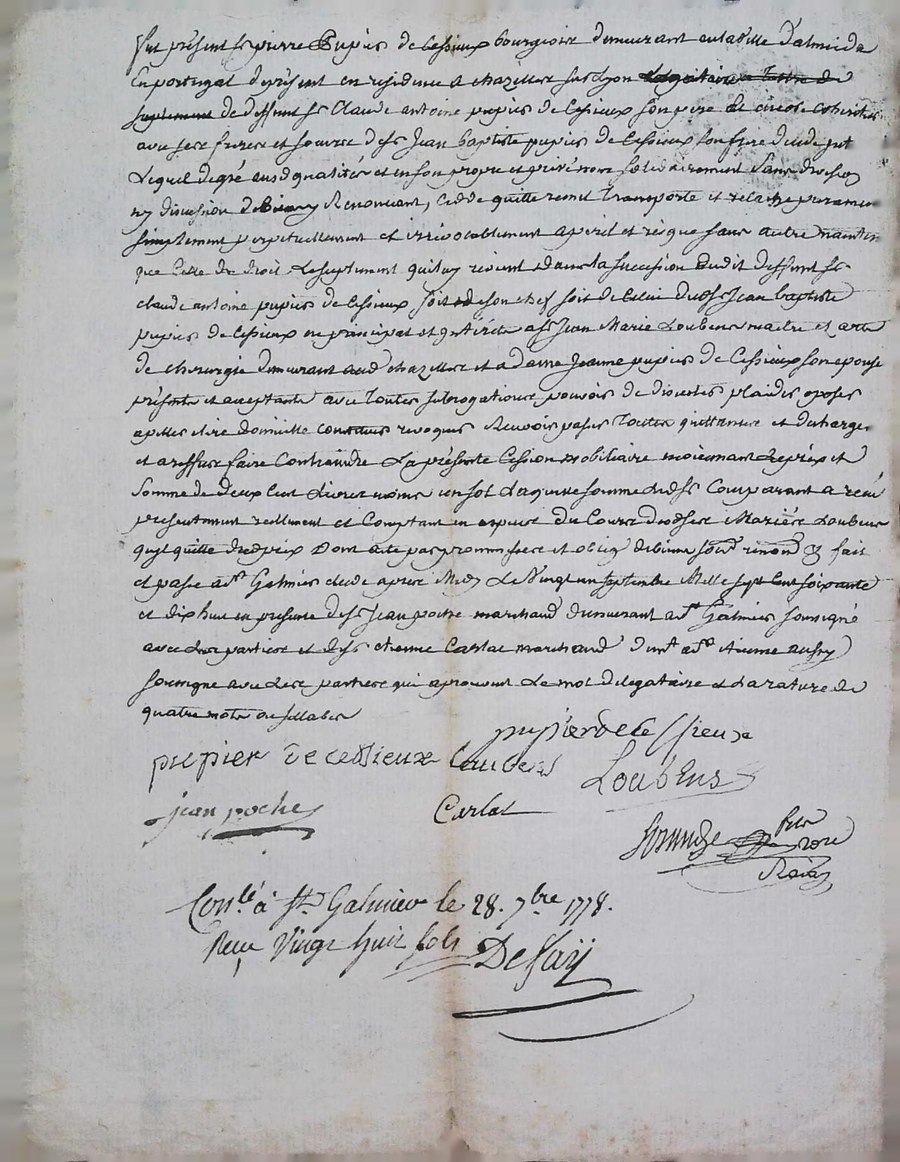 Fut présent sr pierre Pupier de Cessieux bourgeois demeurant en la ville d'almeida
En portugal de présent en residence a chazelles sur Lyon
de deffunt sr Claude antoine pupier de Cessieux son pere et encore coheritier
avec ses freres et soeurs du sr Jean baptiste pupier de Cessieux son frere
Lequel de gré ausd qualités et en son propre et privé nom solidairement sans division
ny discussion de Biens Renonçant, Cedde quitte remet Transporte et relache purement
simplement perpetuellement et irrévocablement a peril et risque sans autre maintenue
que Celle de droit Le septiement qui luy revient dans la succession dudit deffunt sr
claude antoine pupier de Cessieux soit de son chef soit de Celui dud sr Jean baptiste
pupier de Cessieux en principal et intérêts a sr Jean Marie Loubens maitre et arts
de chirurgie demeurant aud chazelles et a dame Jeanne pupier de Cessieux son epouse
présents et acceptants avec Toutes subrogations pouvoir de discuter plaider oposer
apeller elire domicille revoquer Recevoir passer Toutes quittances et decharges
et a reffus faire Contraindre La présente Cession mobiliaire moiennant le prix et
Somme de deux Cent Livres moins un sol Laquelle somme led sr Comparant a reçu
presentement reellement et Comptant en especes du Cours desd srs Mariés Loubens
quil quitte dud prix Dont acte par promesses et oblig de biens soum renond &c fait
et passé a st Galmier etude apres Midy Le Vingt un septembre Mille sept Cent soixante
et dix huit en presence de sr Jean poche marchand demeurant a st Galmier soussigné
avec Les parties et de sr etienne Carlat marchand demt a st aussy
soussigné avec Les parties qui aprouvent Le mot delegataire et La rature de
quatre mots ou sillabes
pupier de Cessieux
pupier de cessieux Loubens Loubens
jean poche Carlat

Conlé à st Galmier le 28. 7bre 1778.
Reçu Vingt huit sols Defaÿ